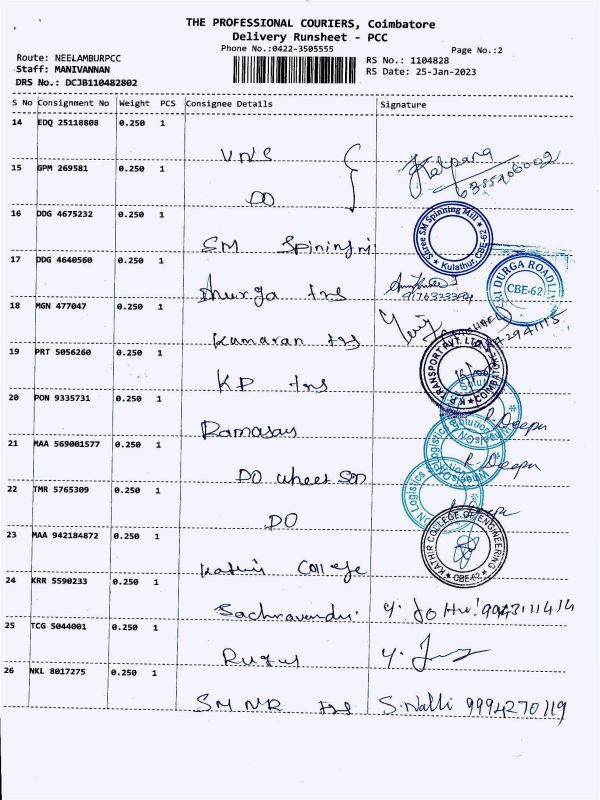 THE PROFESSIONAL COURIERS, Coimbatore
Delivery Runsheet - PCC
Phone No.:0422-3505555
Page No.:2
Route: NEELAMBURPCC
RS No.: 1104828
Staff: MANIVANNAN
RS Date: 25-Jan-2023
DRS No.: DCJB110482802
S No Consignment No Weight PCS Consignee Details Signature
14 EDQ 25118808 0.250 1
VNS
Kalpana
15 GPM 269581 0.250 1
DO
16 DDG 4675232 0.250 1
SM Spining mi
Shree SM Spinning Mill * Kulathur, CBE-62 *
17 DDG 4640560 0.250 1
dhurga tns
DURGA ROADLI
CBE-62
18 MGN 477047 0.250 1
Kamaran tns
19 PRT 5056260 0.250 1
KP tns
TRANSPORT PVT. LTD. COIMBATORE
20 PON 9335731 0.250 1
Ramasay
R. Deepu
21 MAA 569001577 0.250 1
DO wheel SON
R. Deepu
22 TMR 5765309 0.250 1
DO
R. Deepu
23 MAA 942184872 0.250 1
Kathir College
KATHIR COLLEGE OF ENGINEERING * CBE-62 *
24 KRR 5590233 0.250 1
9943111414
25 TCG 5044001 0.250 1
26 NKL 8017275 0.250 1
SMNR tns
S. Nalli 9994270119